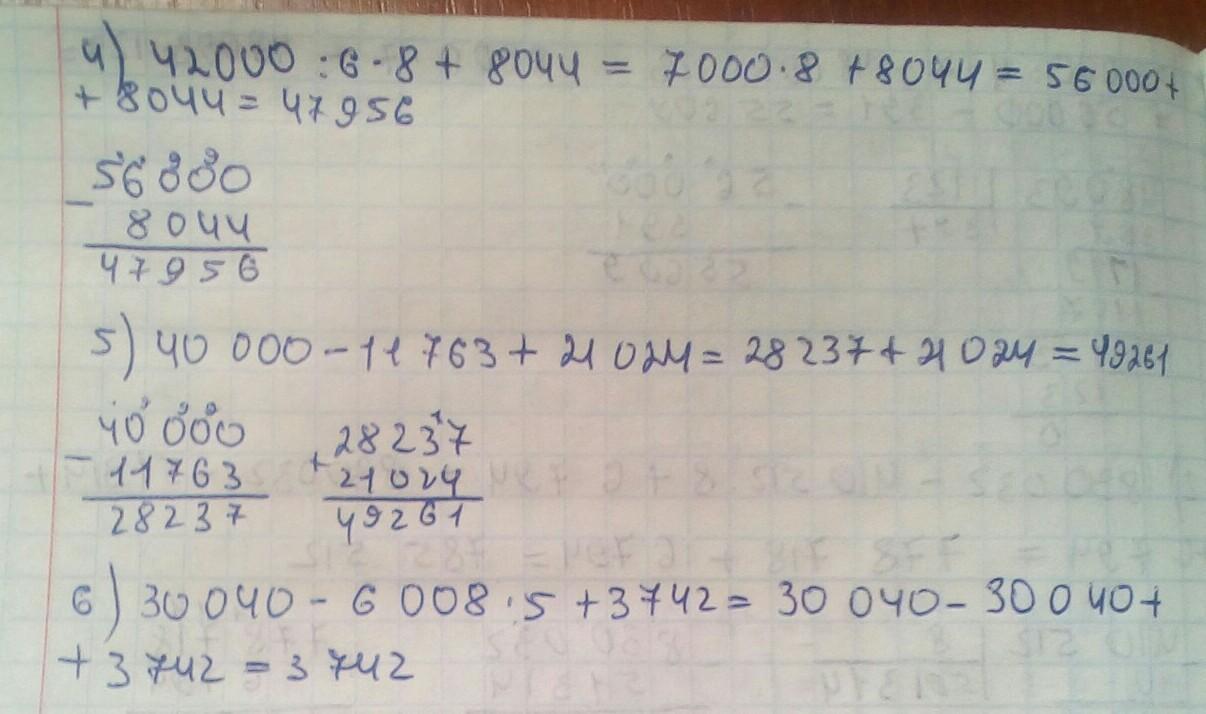 4) 42000 : 6 · 8 + 8044 = 7000 · 8 + 8044 = 56 000 +
+ 8044 = 47956
56000
- 8044
47956
5) 40 000 - 11 763 + 21 024 = 28 237 + 21 024 = 49261
40 000 28237
- 11763 + 21024
28237 49261
6) 30 040 - 6 008 · 5 + 3 742 = 30 040 - 30 040 +
+ 3 742 = 3 742